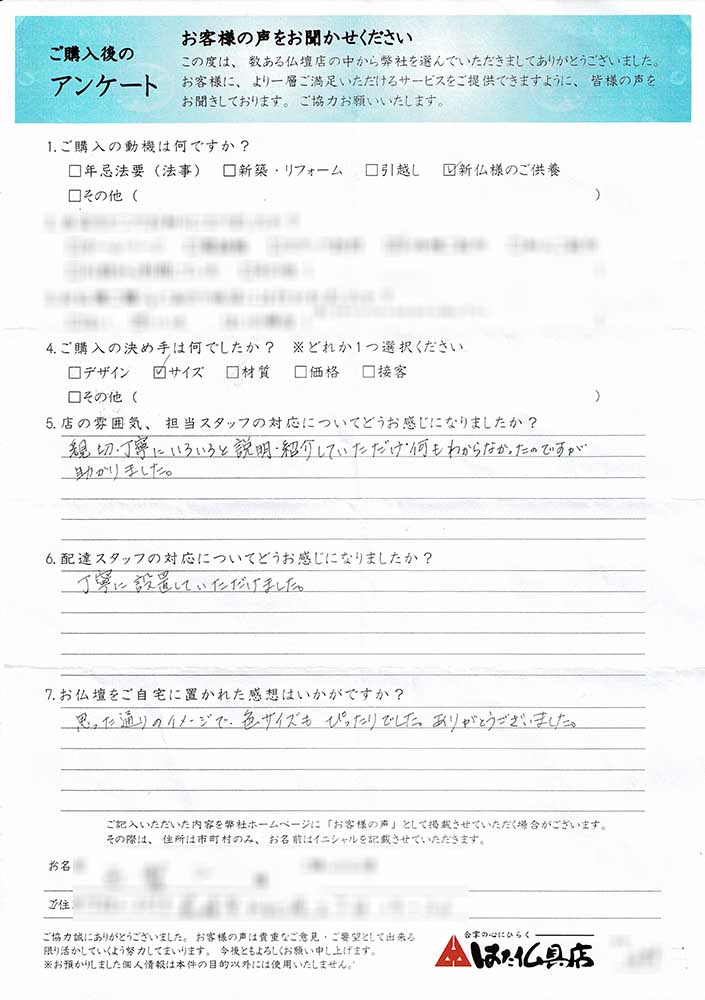 ご購入後の
アンケート
お客様の声をお聞かせください
この度は、数ある仏壇店の中から弊社を選んでいただきましてありがとうございました。
お客様に、より一層ご満足いただけるサービスをご提供できますように、皆様の声を
お聞きしております。ご協力お願いいたします。
1.ご購入の動機は何ですか？
□年忌法要（法事） □新築・リフォーム □引越し ☑新仏様のご供養
□その他（ ）
4.ご購入の決め手は何でしたか？ ※どれか1つ選択ください
□デザイン ☑サイズ □材質 □価格 □接客
□その他（ ）
5.店の雰囲気、担当スタッフの対応についてどうお感じになりましたか？
親切、丁寧にいろいろと説明・紹介していただけ何もわからなかったのですが
助かりました。
6.配達スタッフの対応についてどうお感じになりましたか？
丁寧に設置していただけました。
7.お仏壇をご自宅に置かれた感想はいかがですか？
思った通りのイメージで、色サイズもぴったりでした。ありがとうございました。
ご記入いただいた内容を弊社ホームページに「お客様の声」として掲載させていただく場合がございます。
その際は、住所は市町村のみ、お名前はイニシャルを記載させていただきます。
お名
ご住
ご協力誠にありがとうございました。お客様の声は貴重なご意見・ご要望として出来る
限り活かしていくよう努力してまいります。今後ともよろしくお願い申し上げます。
※お預かりしました個人情報は本件の目的以外には使用いたしません。
合掌の心にひらく
はた仏具店